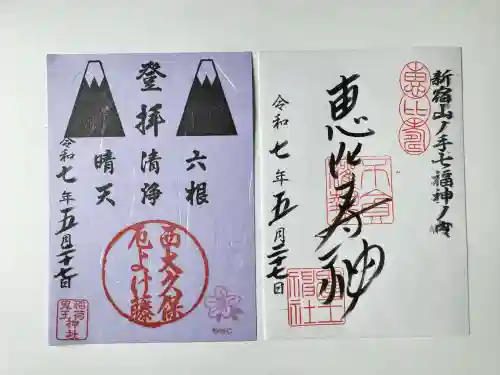 登拝
六根
清浄
晴天
令和七年五月二十七日
西大久保
厄よけ藤
稲荷神社
鬼王
新宿山ノ手七福神ノ内
恵比寿
恵比寿神
令和七年五月二十七日